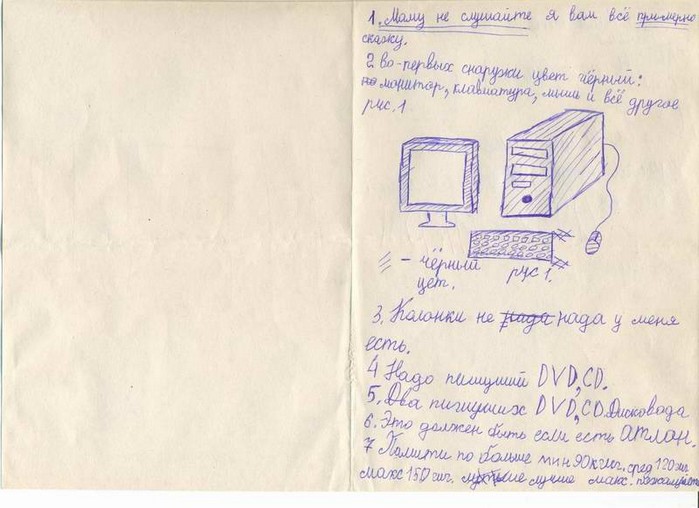 1. Маму не слушайте я вам всё примерно
скажу.
2 во-первых снаружи цвет чёрный:
монитор, клавиатура, мышь и всё другое
рис. 1
- чёрный
цет.
рис 1.
3. Колонки не надо нада у меня
есть.
4 Надо пишущий DVD, CD.
5. Два пишущих DVD, CD. Дисковода
6. Это должен быть если есть атлон.
7 Памяти по больше мин 90кгиг. сред 120гиг
макс 150гиг. лучше макс. пожалуйста